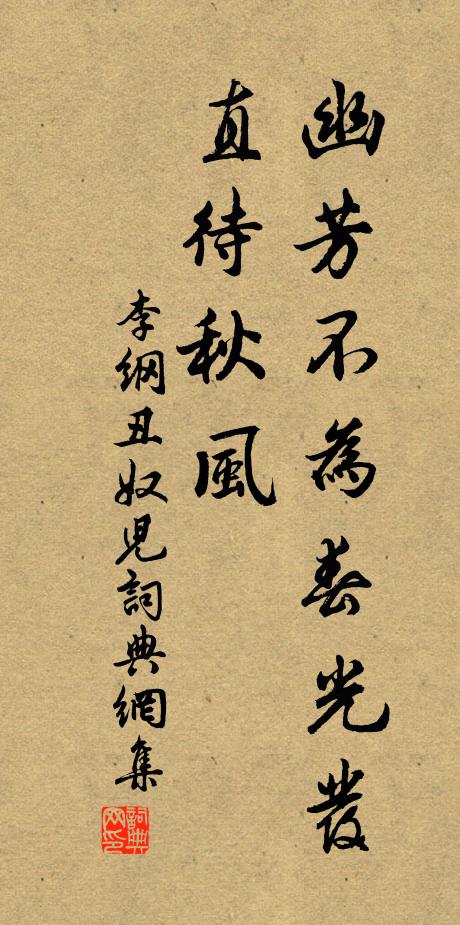 幽芳不為春光發
直待秋風
李綱丑奴兒詞典網集
詞典网印